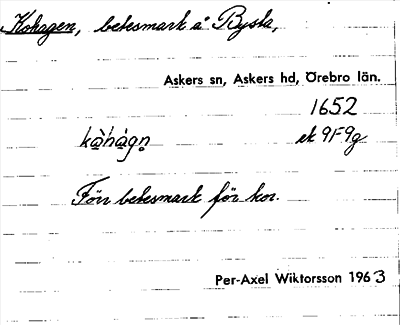 Kohagen, betesmark å Bysta,
Askers sn, Askers hd, Örebro län.
1652
kòhágn ek 9F9g
Förr betesmark för kor.
Per-Axel Wiktorsson 1963